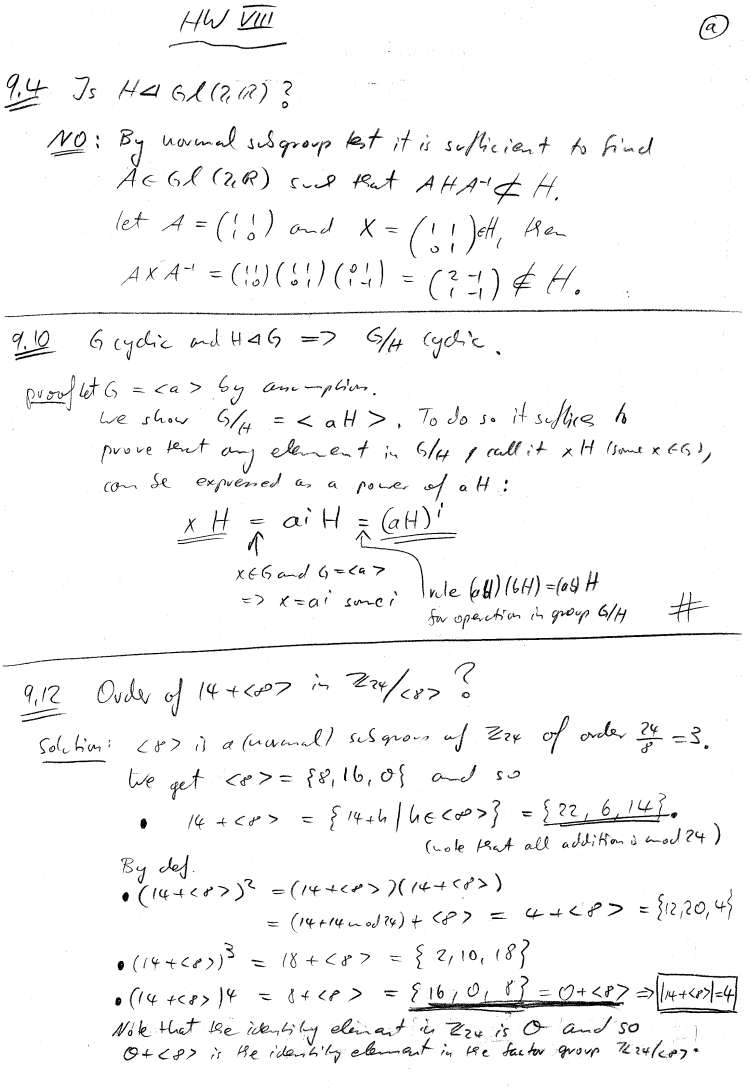 HW VIII
(a)
9.4 Is H ⊲ Gl(2,ℝ)?
NO: By normal subgroup test it is sufficient to find
A ∈ Gl(2,ℝ) such that AHA⁻¹ ⊄ H.
let A = (1 1; 1 0) and X = (1 1; 0 1) ∈ H, then
AXA⁻¹ = (1 1; 1 0)(1 1; 0 1)(0 1; 1 -1) = (2 -1; 1 -1) ∉ H.
9.10 G cyclic and H ⊲ G => G/H cyclic.
proof let G = <a> by assumption.
We show G/H = <aH>. To do so it suffices to
prove that any element in G/H, call it xH (some x ∈ G),
can be expressed as a power of aH:
xH = aⁱH = (aH)ⁱ
x ∈ G and G = <a>
=> x = aⁱ some i
rule (aH)(bH) = (ab)H
for operation in group G/H #
9.12 Order of 14 + <8> in ℤ24/<8>?
Solution: <8> is a (normal) subgroup of ℤ24 of order 24/8 = 3.
We get <8> = {8, 16, 0} and so
• 14 + <8> = {14+h | h ∈ <8>} = {22, 6, 14}.
(note that all addition is mod 24)
By def.
• (14 + <8>)² = (14 + <8>)(14 + <8>)
= (14+14 mod 24) + <8> = 4 + <8> = {12, 20, 4}
• (14 + <8>)³ = 18 + <8> = {2, 10, 18}
• (14 + <8>)4 = 8 + <8> = {16, 0, 8} = 0 + <8> => |14 + <8>| = 4
Note that the identity element in ℤ24 is 0 and so
0 + <8> is the identity element in the factor group ℤ24/<8>.